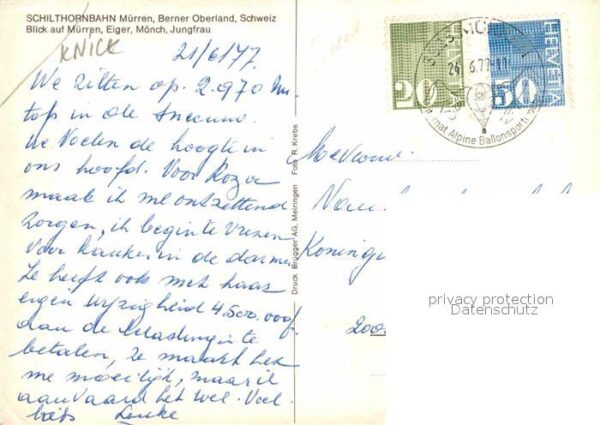 SCHILTHORNBAHN Mürren, Berner Oberland, Schweiz
Blick auf Mürren, Eiger, Mönch, Jungfrau
KNICK
21/6/77.
We zitten op. 2.970 m
top in de sneeuw.
We voelen de hoogte in
ons hoofd. Voor
maak ik me ontzettend
zorgen, ik begin te vrezen
voor kanker in de darmen
Ze heeft ook met haar
eigen wijzigheid 4.500.000 f.
aan de belasting in te
betalen, ze maakt het
me moeilijk, maar ik
aanvaard het wel. Veel
liefs
Druck Brügger AG, Meiringen Foto R. Krebs
20 HELVETIA
HELVETIA 50
24.6.77-11
Internat Alpine Ballonsport
Mevrouw.
Koningin
200
privacy protection
Datenschutz